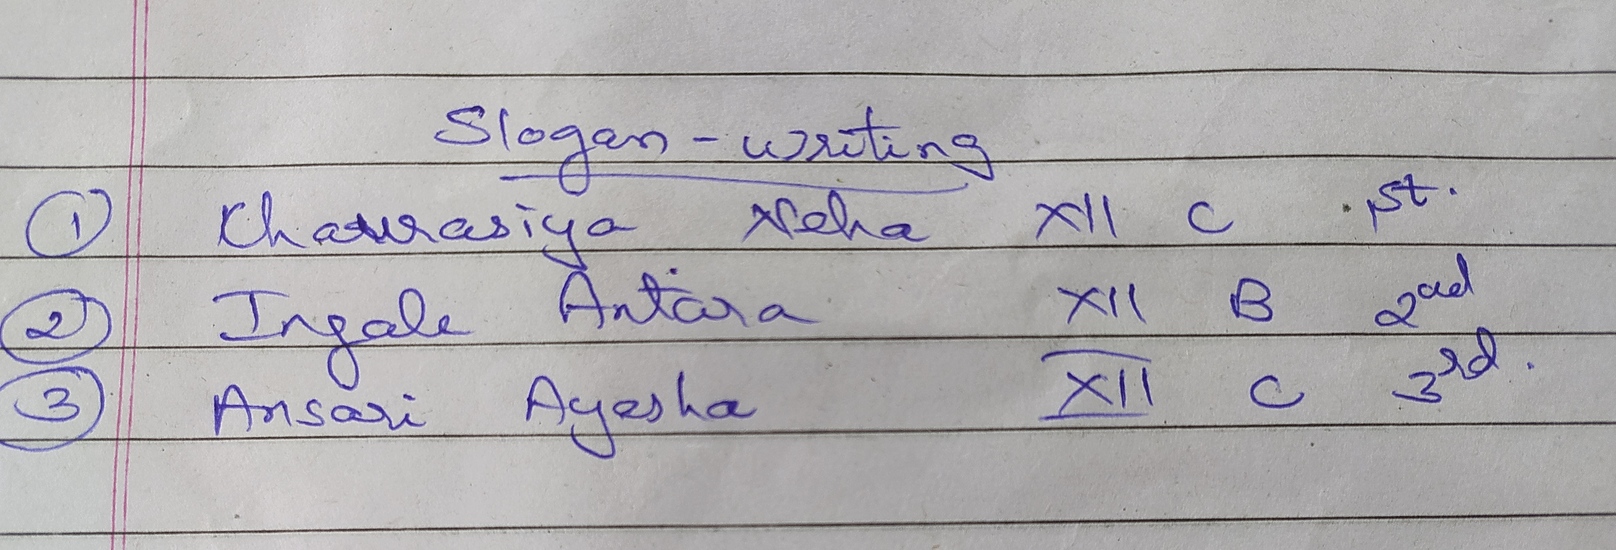 Slogan-writing
1 Khaurasiya Neha XII C 1st.
2 Ingale Antara XII B 2nd
3 Ansari Ayesha XII C 3rd.